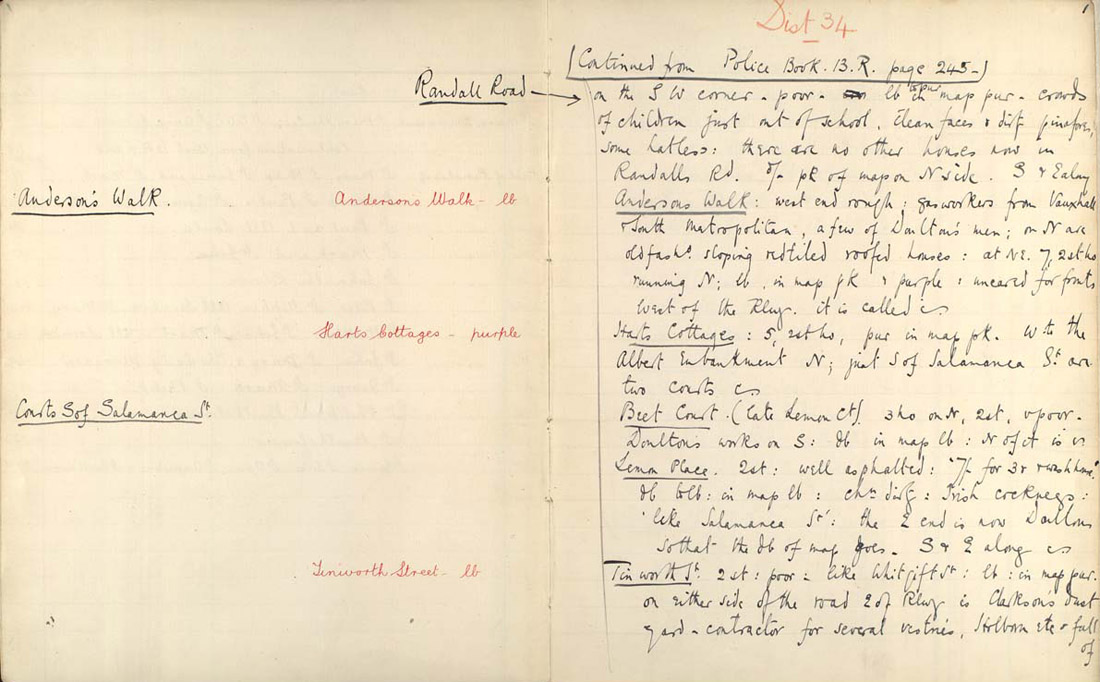 Randall Road
Anderson's Walk.
Andersons Walk - lb
Harts Cottages - purple
Courts S of Salamanca St.
Tinworth Street - lb
Dist 34
1
(Continued from Police Book. B.R. page 245-)
on the S W corner - poor - lb in map pur - crowds
of children just out of school, clean faces & dirty pinafores,
some hatless: there are no other houses now in
Randalls Rd. pk of map on N side. S & E along
Andersons Walk: west end rough: gasworkers from Vauxhall
& South Metropolitan, a few of Doulton's men; on N are
old fashd. sloping redtiled roofed houses: at NE. 7, 2st ho
running N; lb, in map pk & purple: uncared for fronts
West of the Rlwy. it is called
Harts Cottages: 5, 2st ho, pur in map pk. W to the
Albert Embankment N; just S of Salamanca St. are
two courts
Beet Court. (late Lemon Ct). 3 ho on N, 2st, v poor.
Doultons works on S: db in map lb: N of it is
Lemon Place. 2st: well asphalted: '7/- for 3r & washhouse'
db to lb: in map lb: chn dirty: Irish cockneys:
'like Salamanca St': the E end is now Doultons
So that the db of map goes - S & E along
Tinworth St. 2st: poor: like Whitgift St: lb: in map pur.
on either side of the road E of Rlwy is Clarkson's dust
yard - contractor for several vestries, Holborn etc & full
of